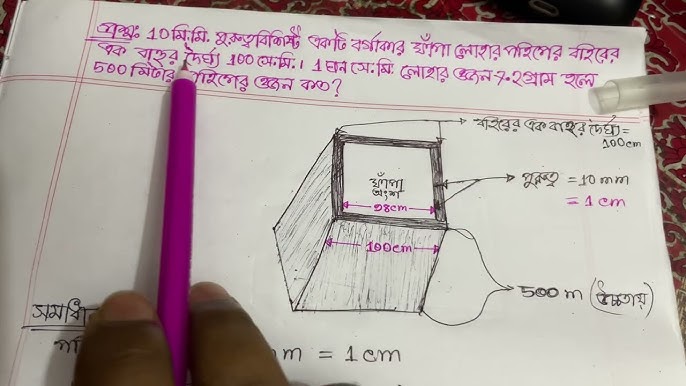 প্রশ্ন: 10 মি.মি. পুরুত্ববিশিষ্ট একটি বর্গাকার ফাঁপা লোহার পাইপের বাইরের
এক বাহুর দৈর্ঘ্য 100 সে.মি.। 1 ঘন সে.মি. লোহার ওজন 7.2 গ্রাম হলে
500 মিটার পাইপের ওজন কত?
বাইরের এক বাহুর দৈর্ঘ্য =
100cm
ফাঁপা
অংশ
98cm
পুরুত্ব = 10mm
= 1 cm
100cm
500 m (উচ্চতায়)
m = 1 cm